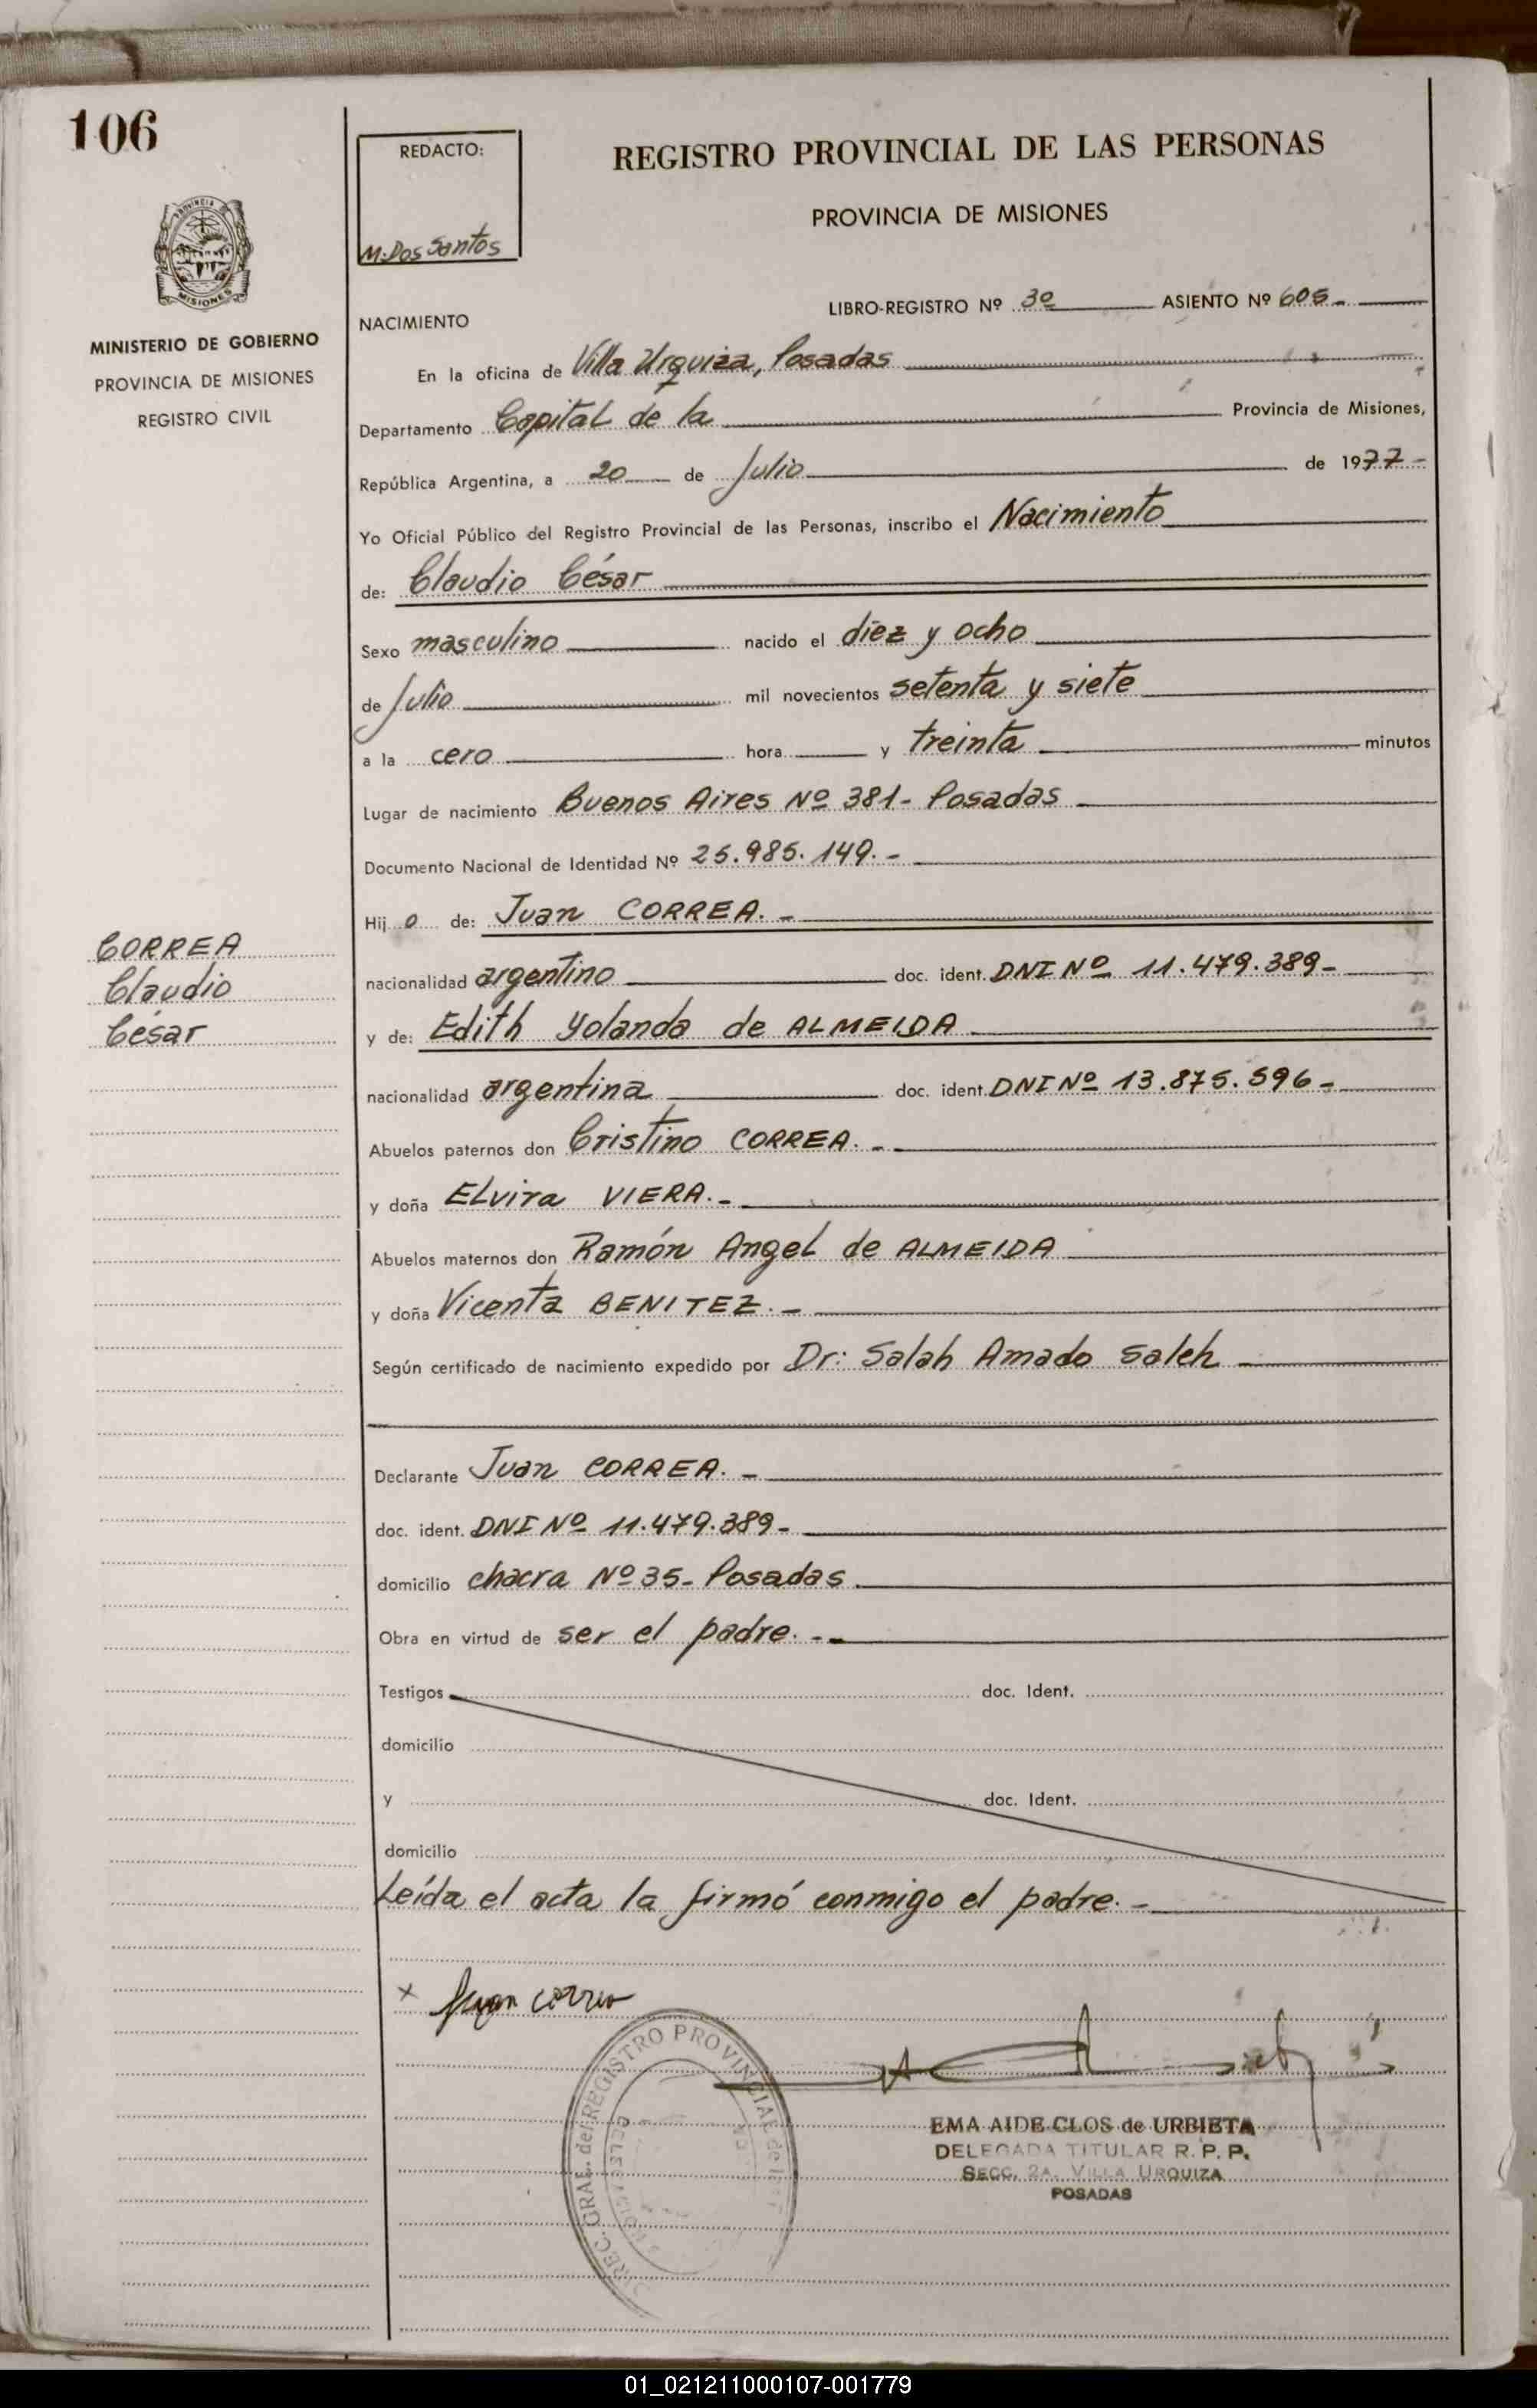 106
REDACTO:
M. Dos Santos
REGISTRO PROVINCIAL DE LAS PERSONAS
PROVINCIA DE MISIONES
PROVINCIA
MISIONES
MINISTERIO DE GOBIERNO
PROVINCIA DE MISIONES
REGISTRO CIVIL
LIBRO-REGISTRO Nº 3º ASIENTO Nº 605-
NACIMIENTO
En la oficina de Villa Urquiza, Posadas
Departamento Capital de la Provincia de Misiones,
República Argentina, a 20 de Julio de 1977-
Yo Oficial Público del Registro Provincial de las Personas, inscribo el Nacimiento
de: Claudio César
Sexo masculino nacido el diez y ocho
de Julio mil novecientos setenta y siete
a la cero hora y treinta minutos
Lugar de nacimiento Buenos Aires Nº 381- Posadas
Documento Nacional de Identidad Nº 25.985.149.-
Hijo de: Juan CORREA.-
CORREA
Claudio
César
nacionalidad argentino doc. ident. DNI Nº 11.479.389-
y de: Edith Yolanda de ALMEIDA
nacionalidad argentina doc. ident. DNI Nº 13.875.596-
Abuelos paternos don Cristino CORREA.-
y doña Elvira VIERA.-
Abuelos maternos don Ramón Angel de ALMEIDA
y doña Vicenta BENITEZ.-
Según certificado de nacimiento expedido por Dr: Salah Amado Saleh
Declarante Juan CORREA.-
doc. ident. DNI Nº 11.479.389-
domicilio chacra Nº 35- Posadas
Obra en virtud de ser el padre.--
Testigos doc. Ident.
domicilio
y doc. Ident.
domicilio
Leída el acta la firmó conmigo el padre.-
x Juan Correa
DIREC. GRAL. del REGISTRO PROVINCIAL de las
EMA AIDE CLOS de URBIETA
DELEGADA TITULAR R. P. P.
SECC. 2A. VILLA URQUIZA
POSADAS
01_021211000107-001779